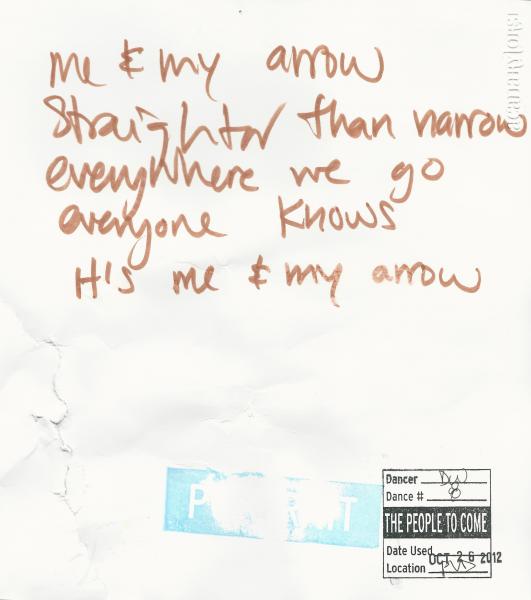 me & my arrow
Straighter than narrow
everywhere we go
everyone knows
it's me & my arrow
acanarytorsi
Dancer DW
Dance # 8
THE PEOPLE TO COME
Date Used OCT 26 2012
Location PVD